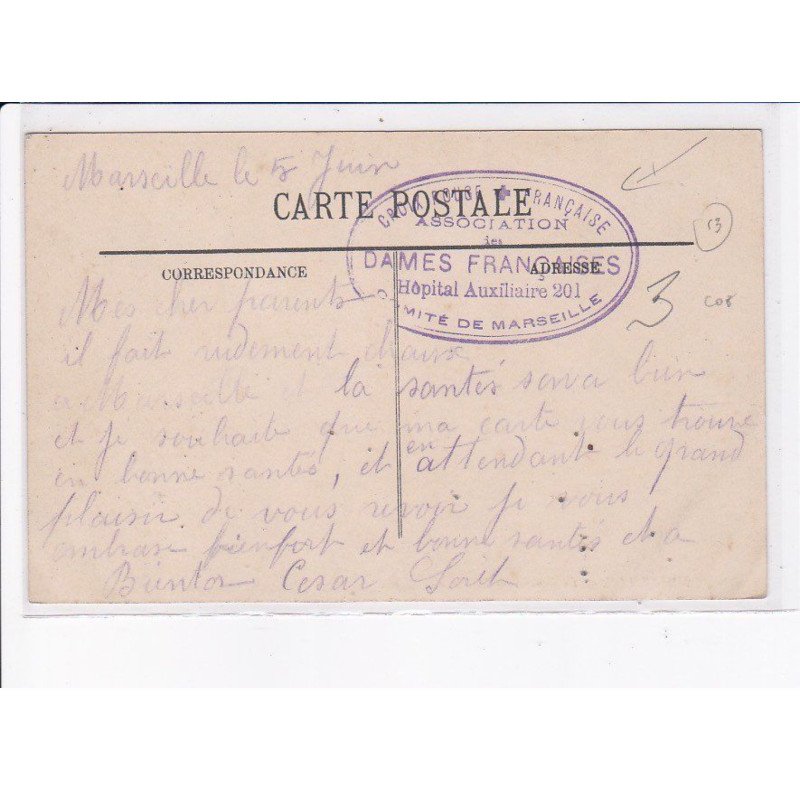 Marseille le 5 Juin
CARTE POSTALE
CROIX ROUGE FRANÇAISE
ASSOCIATION
des
DAMES FRANÇAISES
Hôpital Auxiliaire 201
COMITÉ DE MARSEILLE
CORRESPONDANCE
ADRESSE
13
3
cor
Mes cher parents
il fait rudement chaux
a Marseille et la santés sava bien
et je souhaite que ma carte vous trouve
en bonne santés, et en attendant le grand
plaisir de vous revoir je vous
embrase bienfort et bonne santés et a
Bientos Cesar